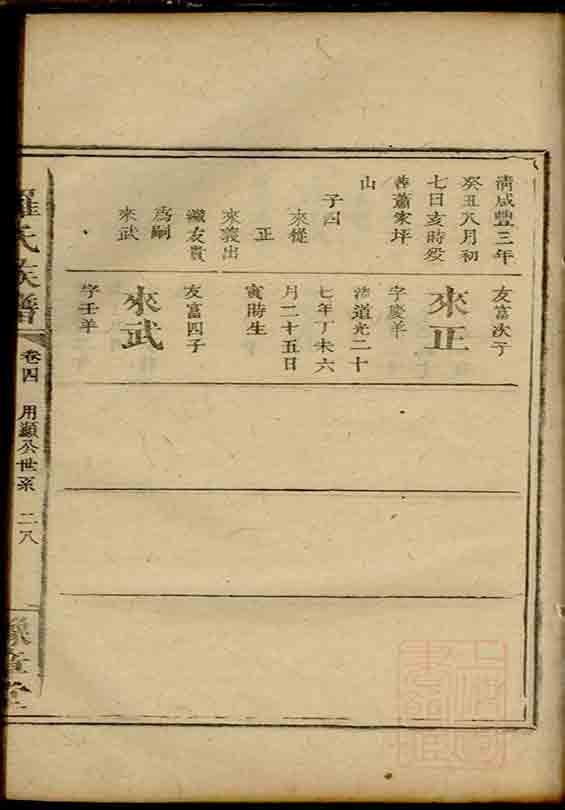 清咸豐三年
癸丑八月初
七日亥時歿
葬蕭家坪
山
子四
來從
正
來義出
繼友貴
為嗣
來武
友富次子
來正
字慶羊
清道光二十
七年丁未六
月二十五日
寅時生
友富四子
來武
字壬羊
羅氏族譜
卷四
用顯公世系
二八
豫章堂